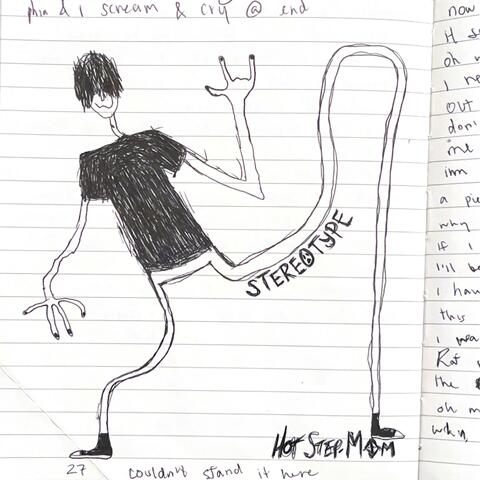 phin & I scream & cry @ end
STEREOTYPE
HOT STEP MOM
27 couldn't stand it here
now
H
oh
I
out
don'
me
imm
a pie
why
if I
I'll be
I hav
this
I mea
Rat
the
oh m
why,